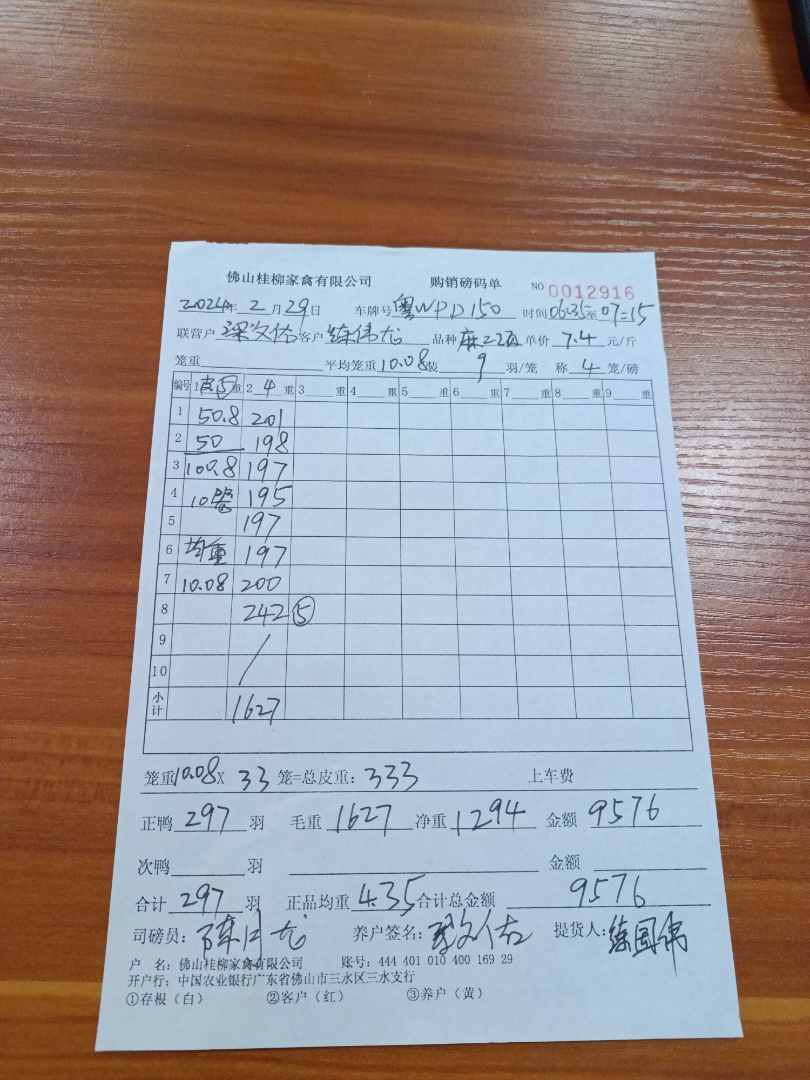 佛山桂柳家禽有限公司 购销磅码单 NO 0012916
2024年 2 月 29 日 车牌号 粤WPD150 时间 06:35 至 07:15
联营户 梁文佑 客户 练伟龙 品种 麻 单价 7.4 元/斤
笼重 平均笼重 10.08 装 9 羽/笼 称 4 笼/磅
编号 1 皮⑤ 重 2 4 重 3 重 4 重 5 重 6 重 7 重 8 重 9 重
1 50.8 201
2 50 198
3 100.8 197
4 10笼 195
5 197
6 均重 197
7 10.08 200
8 242 ⑤
9 /
10
小计 1627
笼重 10.08 X 33 笼=总皮重: 333 上车费
正鸭 297 羽 毛重 1627 净重 1294 金额 9576
次鸭 羽 金额
合计 297 羽 正品均重 4.35 合计总金额 9576
司磅员: 养户签名: 梁文佑 提货人: 练国伟
户 名: 佛山桂柳家禽有限公司 账号: 444 401 010 400 169 29
开户行: 中国农业银行广东省佛山市三水区三水支行
①存根(白) ②客户(红) ③养户(黄)